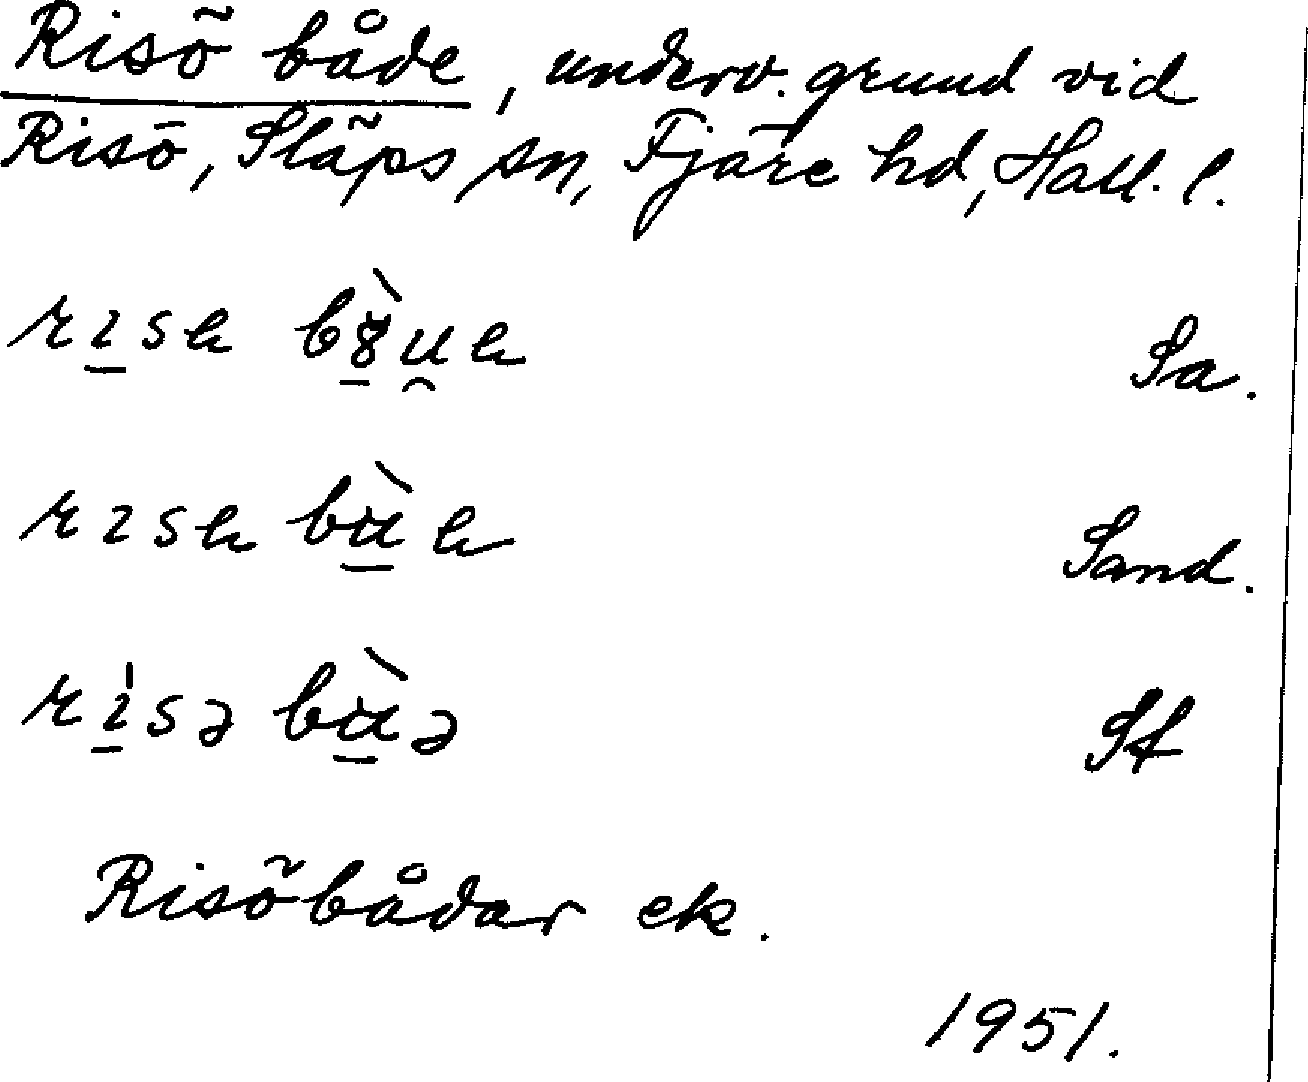 Risö både, underv. grund vid
Risö, Släps sn, Fjäre hd, Hall. l.
Sa.
Sand.
rısə bùə St
Risöbådar ek.
1951.